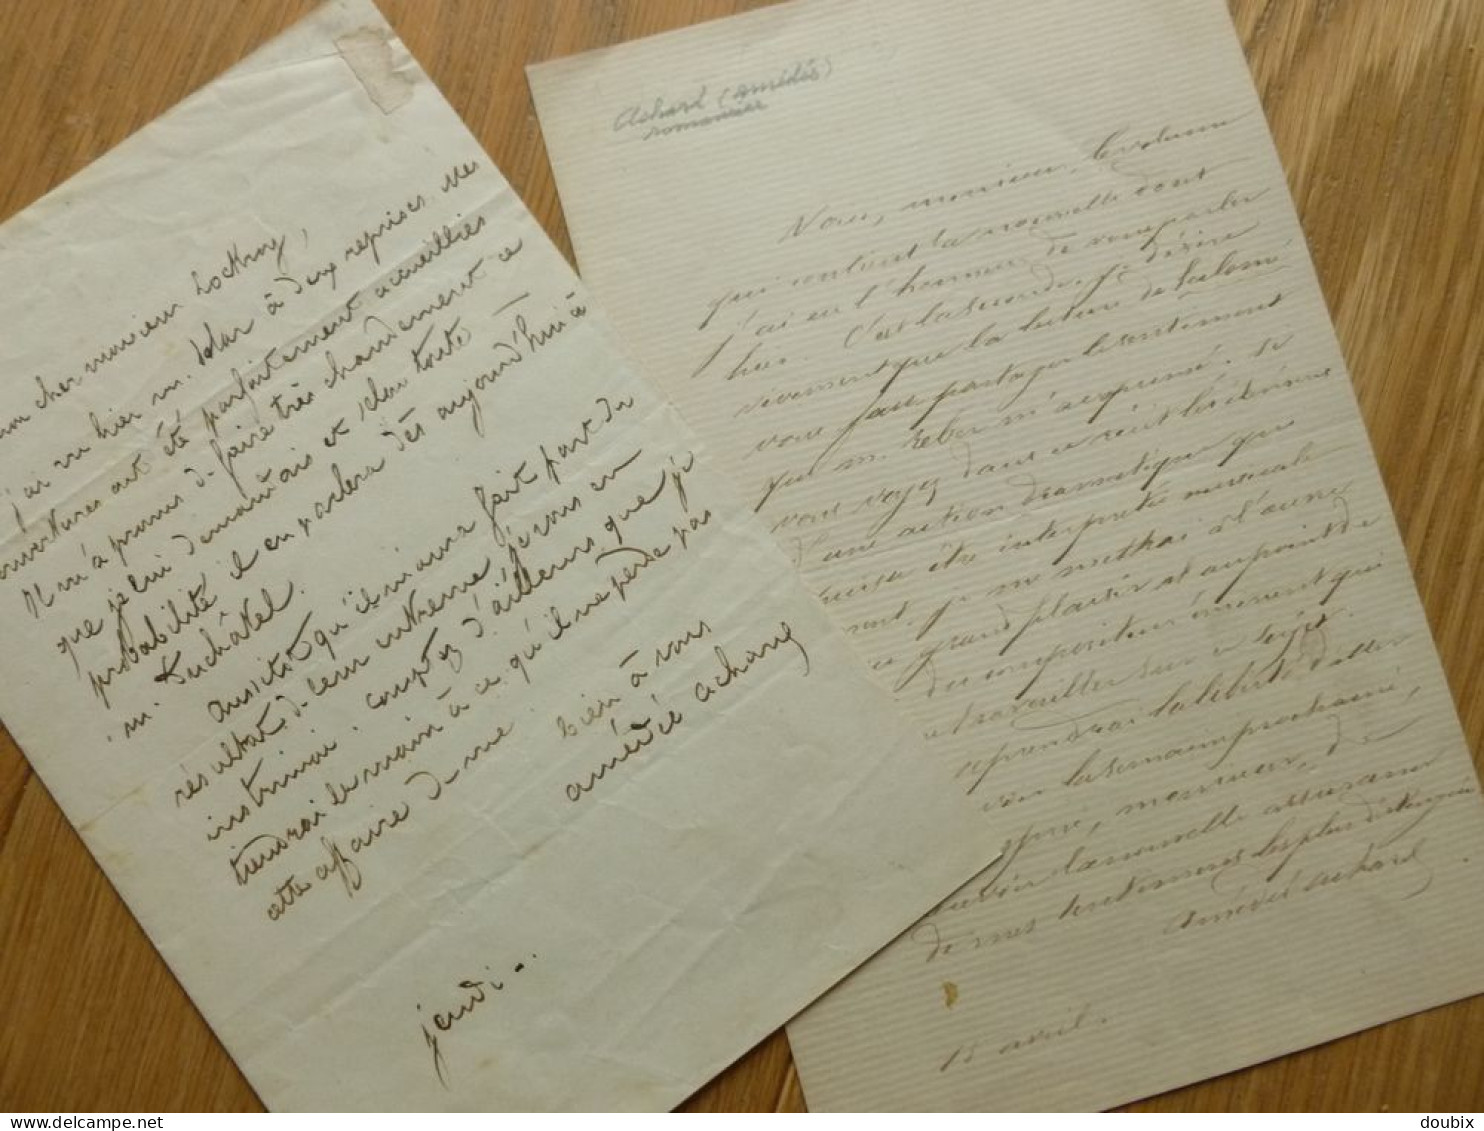 mon cher monsieur Lockroy,
j'ai vu hier m. à deux reprises. Mes
ouvertures ont été parfaitement accueillies
Il m'a promis de faire très chaudement ce
que je lui demandois et selon toute
probabilité il en parlera dès aujourd'hui à
m. Duchâtel.
Aussitôt qu'il m'aura fait part du
résultat de leur entrevue, je vous en
instruirai. comptez d'ailleurs que je
tiendrai la main à ce qu'il ne perde pas
cette affaire de vue.
bien à vous
amédée achard
jeudi.
Achard (Amédée)
romancier
Voici, monsieur, le volume
qui contient la nouvelle dont
j'ai eu l'honneur de vous parler
hier. C'est la seconde. Je désire
vivement que la lecture de
vous fasse partager le sentiment
que m. Reber m'a exprimé. Si
vous voyez dans ce récit les
d'une action dramatique qui
puisse être interprétée musicale
ment, je me mettrai à l'œuvre
avec grand plaisir et au point de
du compositeur éminent qui
travailler sur ce sujet.
je prendrai la liberté d'aller
voir la semaine prochaine,
monsieur, de
recevoir la nouvelle assurance
de mes sentiments les plus distingués
Amédée Achard
15 avril.
doubix